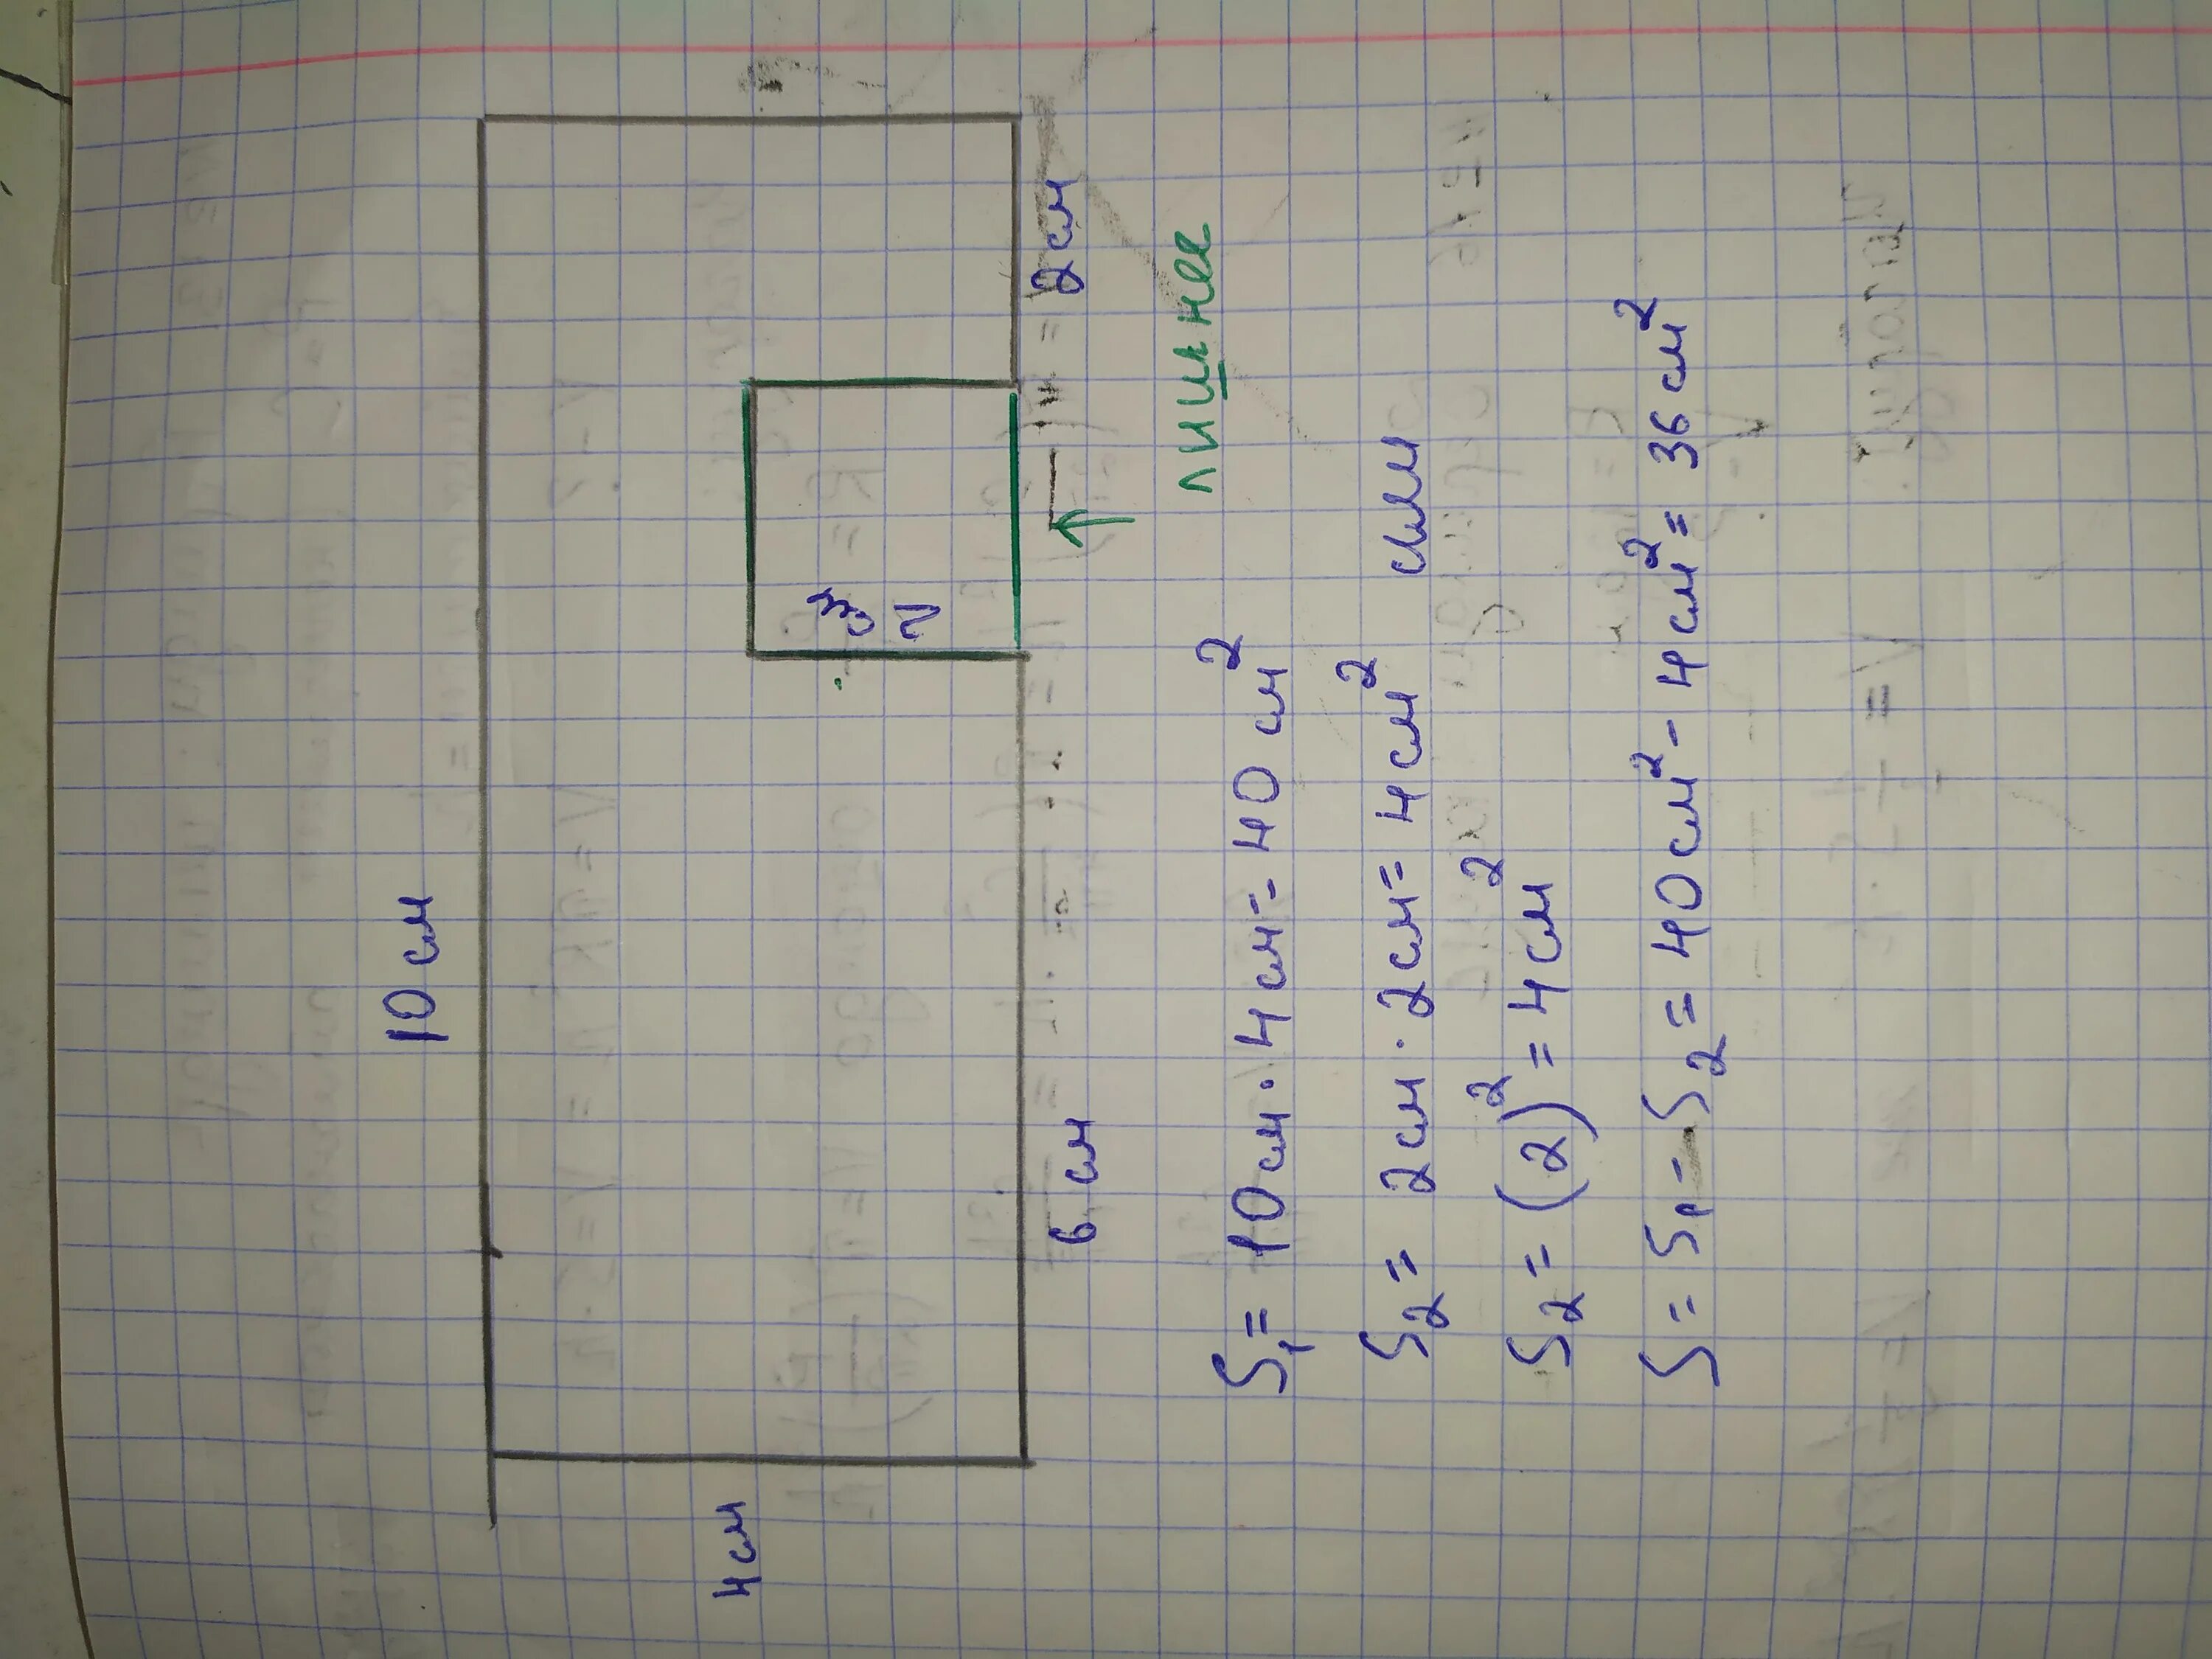 10 см
4 см
2 см
6 см
2 см
лишнее
S₁ = 10 см · 4 см = 40 см²
S₂ = 2 см · 2 см = 4 см² или
S₂ = (2)² = 4 см²
S = S₁ - S₂ = 40 см² - 4 см² = 36 см²